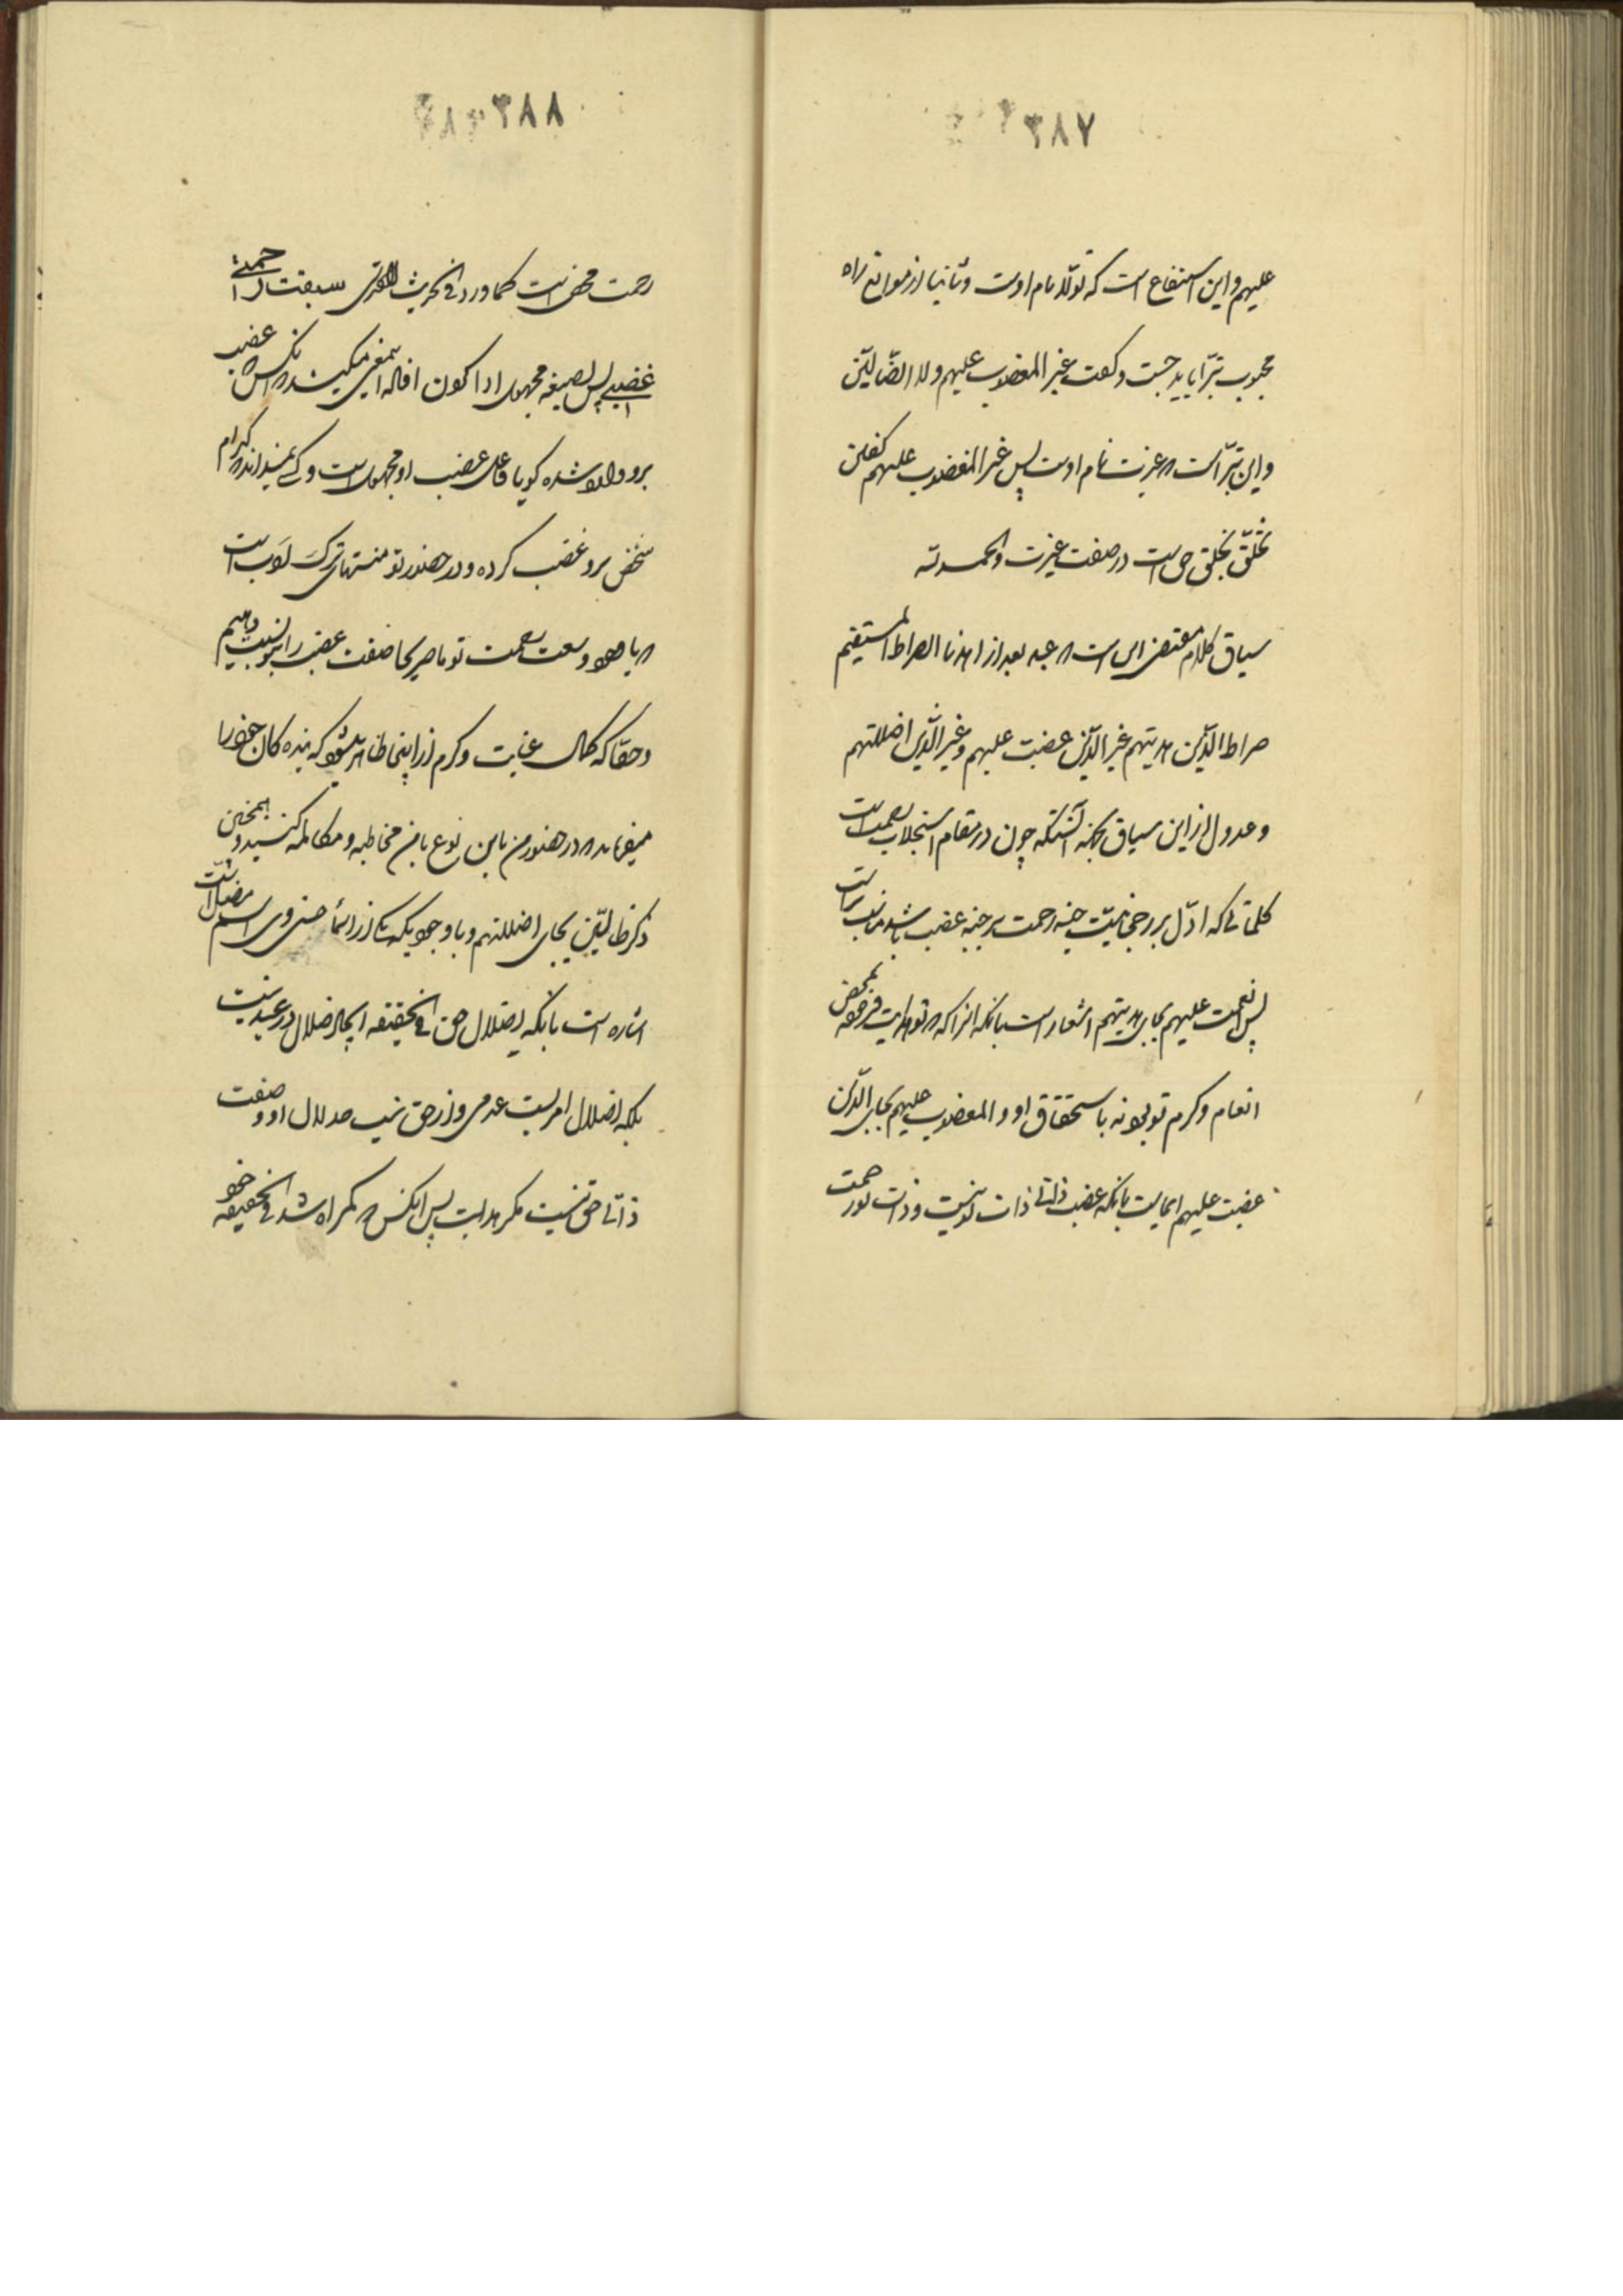 ۳۸۷
علیهم و این استنفاع است که تولّا نام اوست و ثانیا از موانع راه
محبوب تبرّا باید جست و گفت غیر المغضوب علیهم ولا الضّالّین
و این تبرّاست و غیرت نام اوست پس غیر المغضوب علیهم گفتن
تخلّق بخلق حق است در صفت غیرت والحمد لله
سیاق کلام مقتضی این است که عبد بعد از اهدنا الصراط المستقیم
صراط الّذین هدیتهم غیر الّذین غضبت علیهم و غیر الّذین اضللتهم
و عدول از این سیاق نکته آنستکه چون در مقام استجلاب رحمت است
کلماتی که ادّل بر رجحانیّت جنبه رحمت بر جنبه غضب باشد مناسب تر است
پس انعمت علیهم بجای هدیتهم اشعار است بانکه انرا که تو هدایت فرموده بمحض
انعام و کرم تو بود نه باستحقاق او و المغضوب علیهم بجای الّذین
غضبت علیهم ایمائیست بانکه غضب ذاتی ذات تو نیست و ذات تو رحمت
۳۸۸
رحمت محض است کما ورد فی الحدیث القدسی سبقت رحمتی
غضبی پس بصیغه مجهول ادا کردن افاله این معنی میکند که انکس که غضب
برو واقع شده گویا فاعل غضب او مجهول است و کسی نمیداند که کدام
شخص برو غضب کرده و در حضور تو منتهای ترک ادب است
که با وجود وسعت رحمت تو ما صریحا صفت غضب را بتو نسبت دهیم
و حقّا که کمال عنایت و کرم از اینجا ظاهر میشود که بندگان خود را
میفرماید که در حضور من باین نوع با من مخاطبه و مکالمه کنید و همچنین
ذکر ضالّین بجای اضللتهم و با وجودیکه یکی از اسماء حسنی وی اسم مضلّ است
اشاره است بانکه اضلال حق فی الحقیقه ایجاد ضلال در عبد نیست
بلکه اضلال امریست عدمی و از حق نیست ضلال او و صفت
ذاتی حق نیست مگر هدایت پس انکس که گمراه شد فی الحقیقه خود